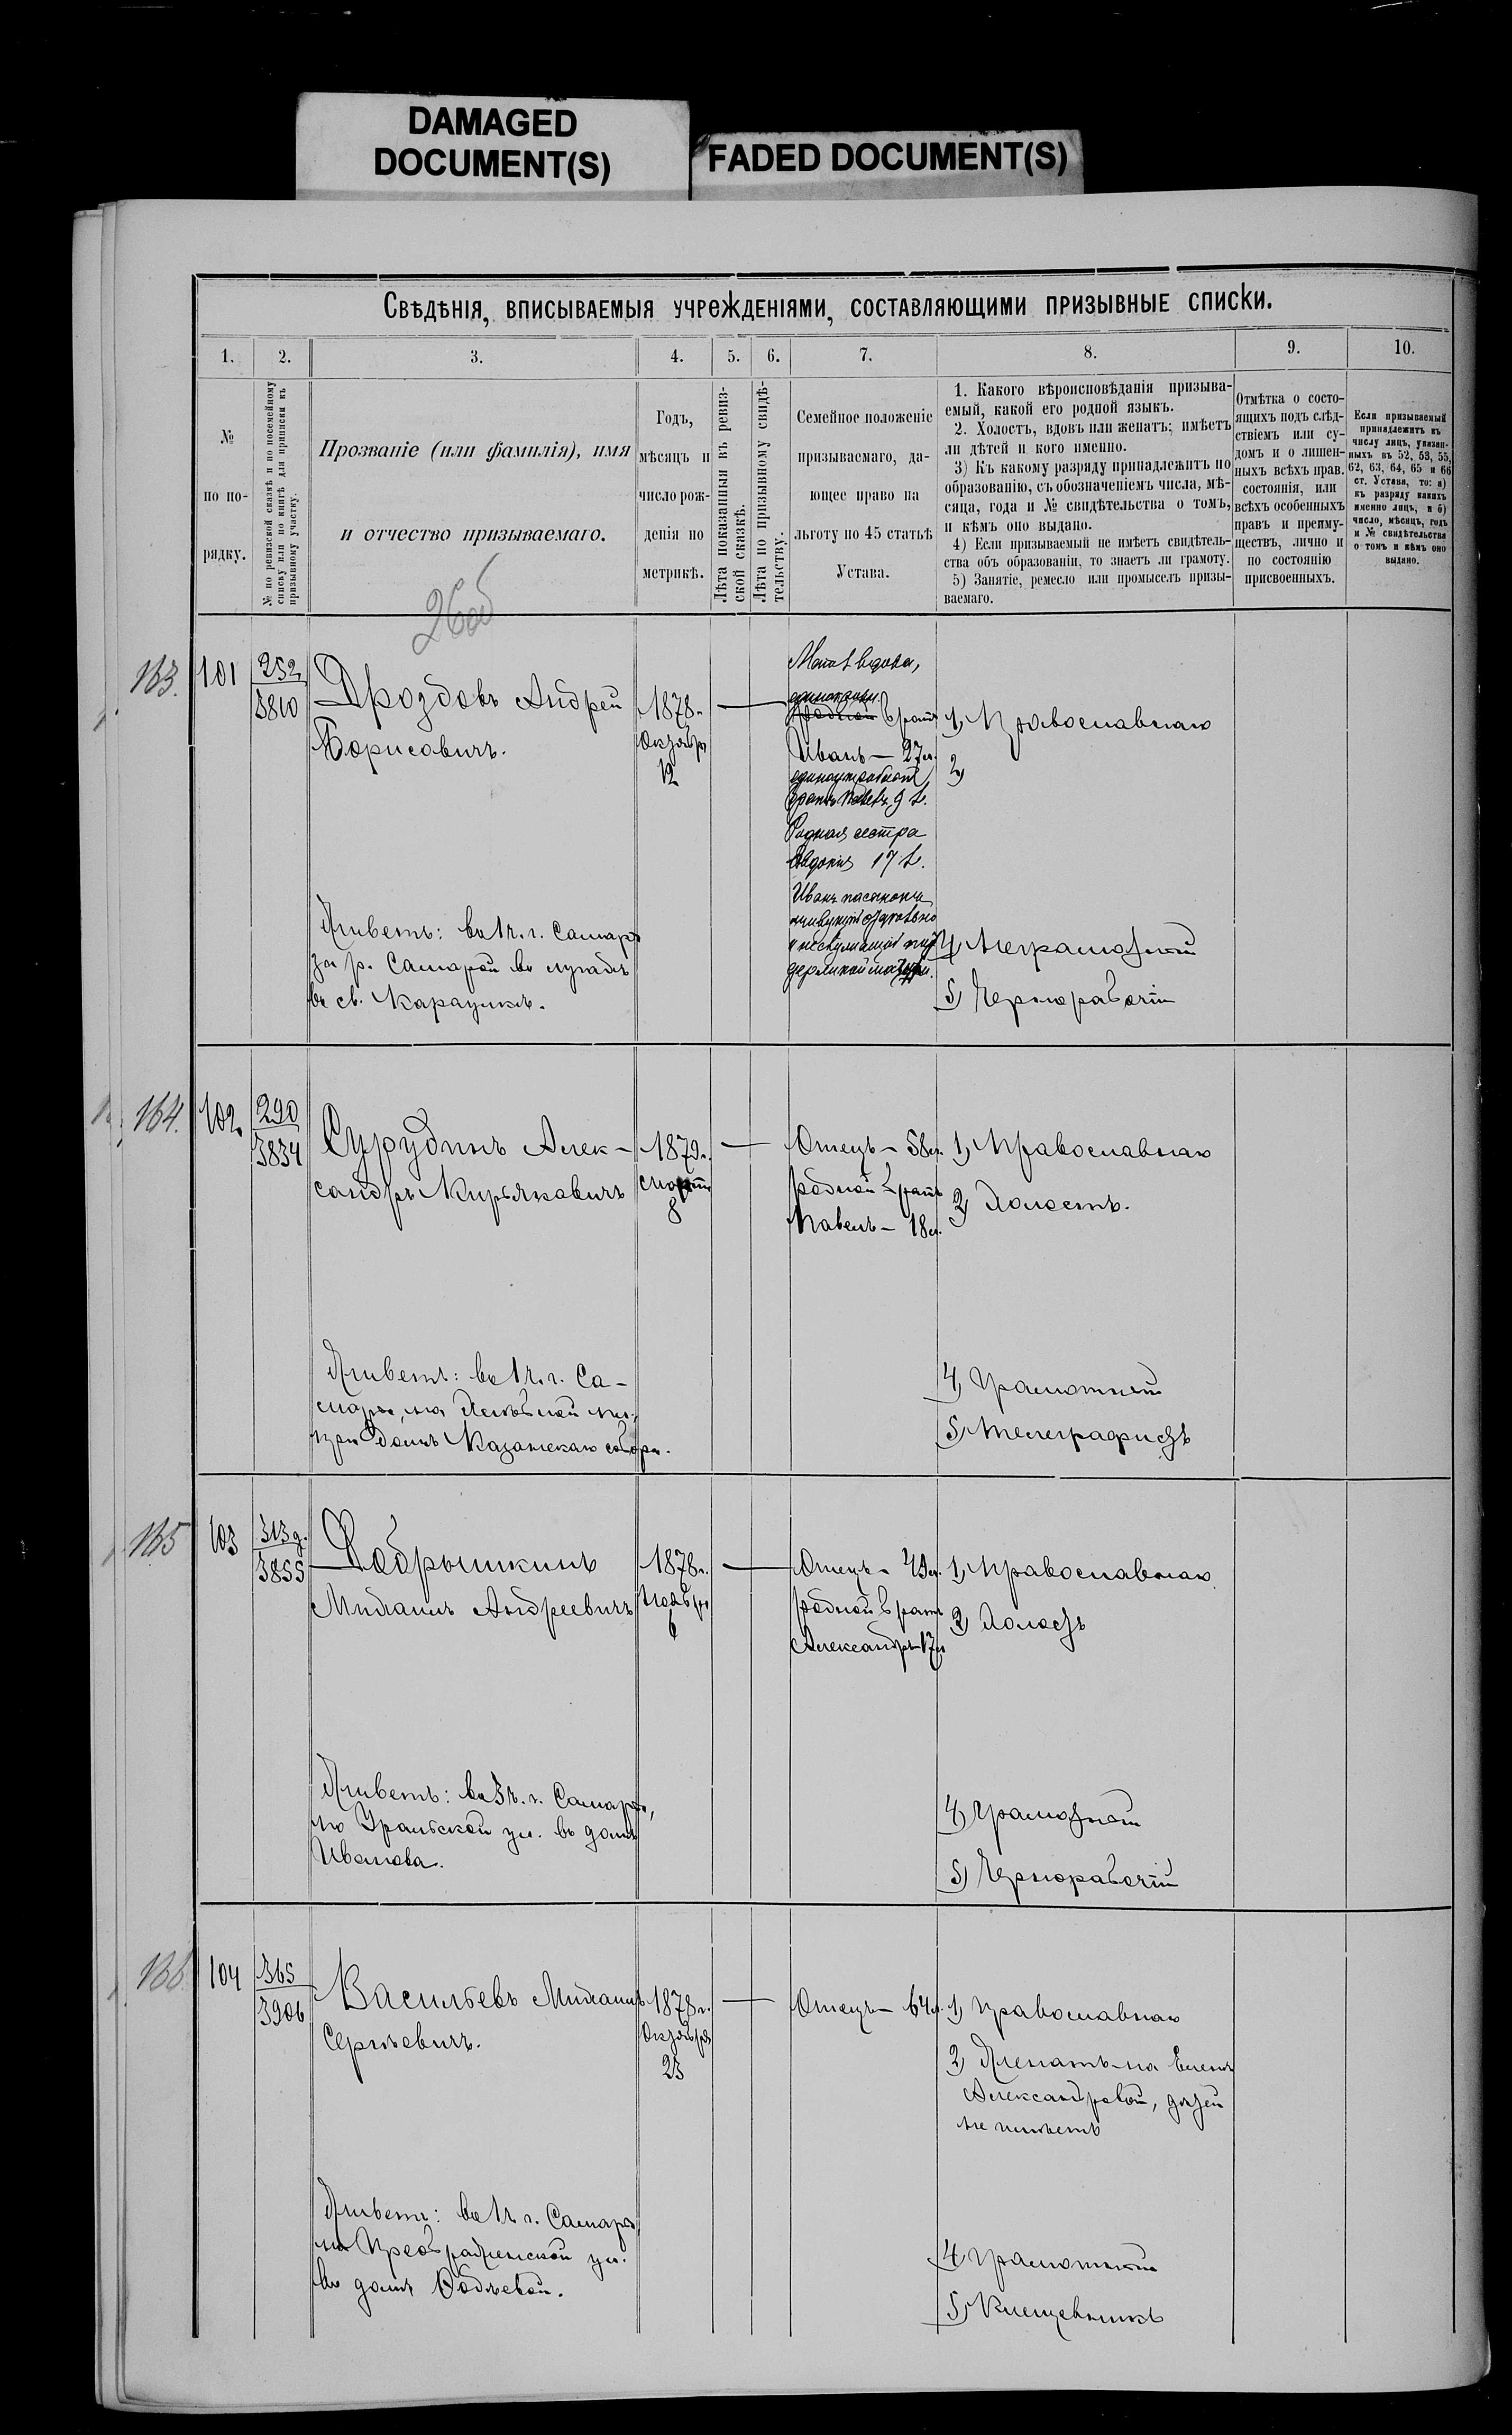 DAMAGED
DOCUMENT(S)
FADED DOCUMENT(S)
Свѣдѣнія, вписываемыя учрежденіями, составляющими призывные списки.
1.
2.
3.
4.
5.
6.
7.
8.
9.
10.
№
по по-
рядку.
№ по ревизской сказкѣ и по посемейному
списку или по книгѣ для приписки къ
призывному участку.
Прозваніе (или фамилія), имя
и отчество призываемаго.
Годъ,
мѣсяцъ и
число рож-
денія по
метрикѣ.
Лѣта показанныя въ ревиз-
ской сказкѣ.
Лѣта по призывному свидѣ-
тельству.
Семейное положеніе
призываемаго, да-
ющее право на
льготу по 45 статьѣ
Устава.
1. Какого вѣроисповѣданія призыва-
емый, какой его родной языкъ.
2. Холостъ, вдовъ или женатъ; имѣетъ
ли дѣтей и кого именно.
3) Къ какому разряду принадлежитъ по
образованію, съ обозначеніемъ числа, мѣ-
сяца, года и № свидѣтельства о томъ,
и кѣмъ оно выдано.
4) Если призываемый не имѣетъ свидѣтель-
ства объ образованіи, то знаетъ ли грамоту.
5) Занятіе, ремесло или промыселъ призы-
ваемаго.
Отмѣтка о состо-
ящихъ подъ слѣд-
ствіемъ или су-
домъ и о лишен-
ныхъ всѣхъ правъ
состоянія, или
всѣхъ особенныхъ
правъ и преиму-
ществъ, лично и
по состоянію
присвоенныхъ.
Если призываемый
принадлежитъ къ
числу лицъ, указан-
ныхъ въ 52, 53, 55,
62, 63, 64, 65 и 66
ст. Устава, то: а)
къ разряду какихъ
именно лицъ, и б)
число, мѣсяцъ, годъ
и № свидѣтельства
о томъ и кѣмъ оно
выдано.
26об
163.
101
252
3810
Дроздовъ Андрей
Борисовичъ.
Живетъ: въ 1 ч. г. Самары
за р. Самарой въ лугахъ
въ с. Караулкѣ.
1878 г.
Октября
12
Мать вдова,
родной братъ
Иванъ — 27 л.
единоутробный
братъ Павелъ 9 л.
Родная сестра
Евдокия 17 л.
Иванъ пасынокъ
живущій отдѣльно
и не служащій под-
держкой матери.
1) Православнаго
2)
4) Неграмотный
5) Чернорабочій
164.
102
290
3834
Сурудинъ Алек-
сандръ Кирьяковичъ
Живетъ: въ 1 ч. г. Са-
мары, на
при домѣ Казанскаго собора.
1879 г.
марта
8
Отецъ — 58 л.
родной братъ
Павелъ — 18 л.
1) Православнаго
2) Холостъ.
4) Грамотный
5) Телеграфистъ
165
103
313 д.
3855
Добрышкинъ
Михаилъ Андреевичъ
Живетъ: въ 3 ч. г. Самары,
по Уральской ул. въ домѣ
Иванова.
1878 г.
Ноября
6
Отецъ — 49 л.
родной братъ
Александръ 17 л.
1) Православнаго
2) Холостъ
4) Грамотный
5) Чернорабочій
166.
104
365
3906
Васильевъ Михаилъ
Сергѣевичъ.
Живетъ: въ 1 ч. г. Самары,
на Преображенской ул.
въ домѣ
1878 г.
Октября
23
Отецъ — 64 л.
1) Православнаго
2) Женатъ на Еленѣ
Александровой, дѣтей
не имѣетъ
4) Грамотный
5)